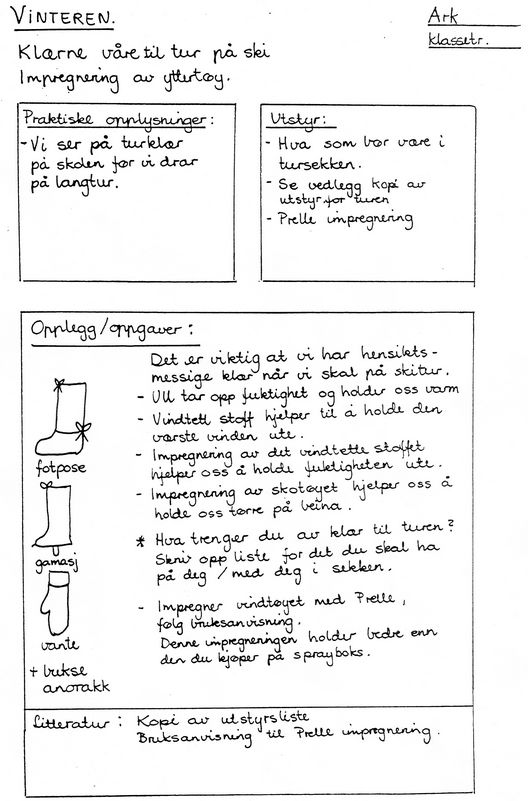 VINTEREN.
Ark
klassetr.
Klærne våre til tur på ski
Impregnering av yttertøy.
Praktiske opplysninger:
- Vi ser på turklær
på skolen før vi drar
på langtur.
Utstyr:
- Hva som bør være i
tursekken.
- Se vedlegg kopi av
utstyr for turen
- Prelle impregnering
Opplegg/oppgaver:
Det er viktig at vi har hensikts-
messige klær når vi skal på skitur.
- Ull tar opp fuktighet og holder oss varm
- Vindtett stoff hjelper til å holde den
værste vinden ute.
- Impregnering av det vindtette stoffet
hjelper oss å holde fuktigheten ute.
- Impregnering av skotøyet hjelper oss å
holde oss tørre på beina.
* Hva trenger du av klær til turen?
Skriv opp liste for det du skal ha
på deg / med deg i sekken.
- Impregner vindtøyet med Prelle,
følg bruksanvisning.
Denne impregneringen holder bedre enn
den du kjøper på sprayboks.
fotpose
gamasj
vante
+ bukse
anorakk
Litteratur: Kopi av utstyrsliste
Bruksanvisning til Prelle impregnering.